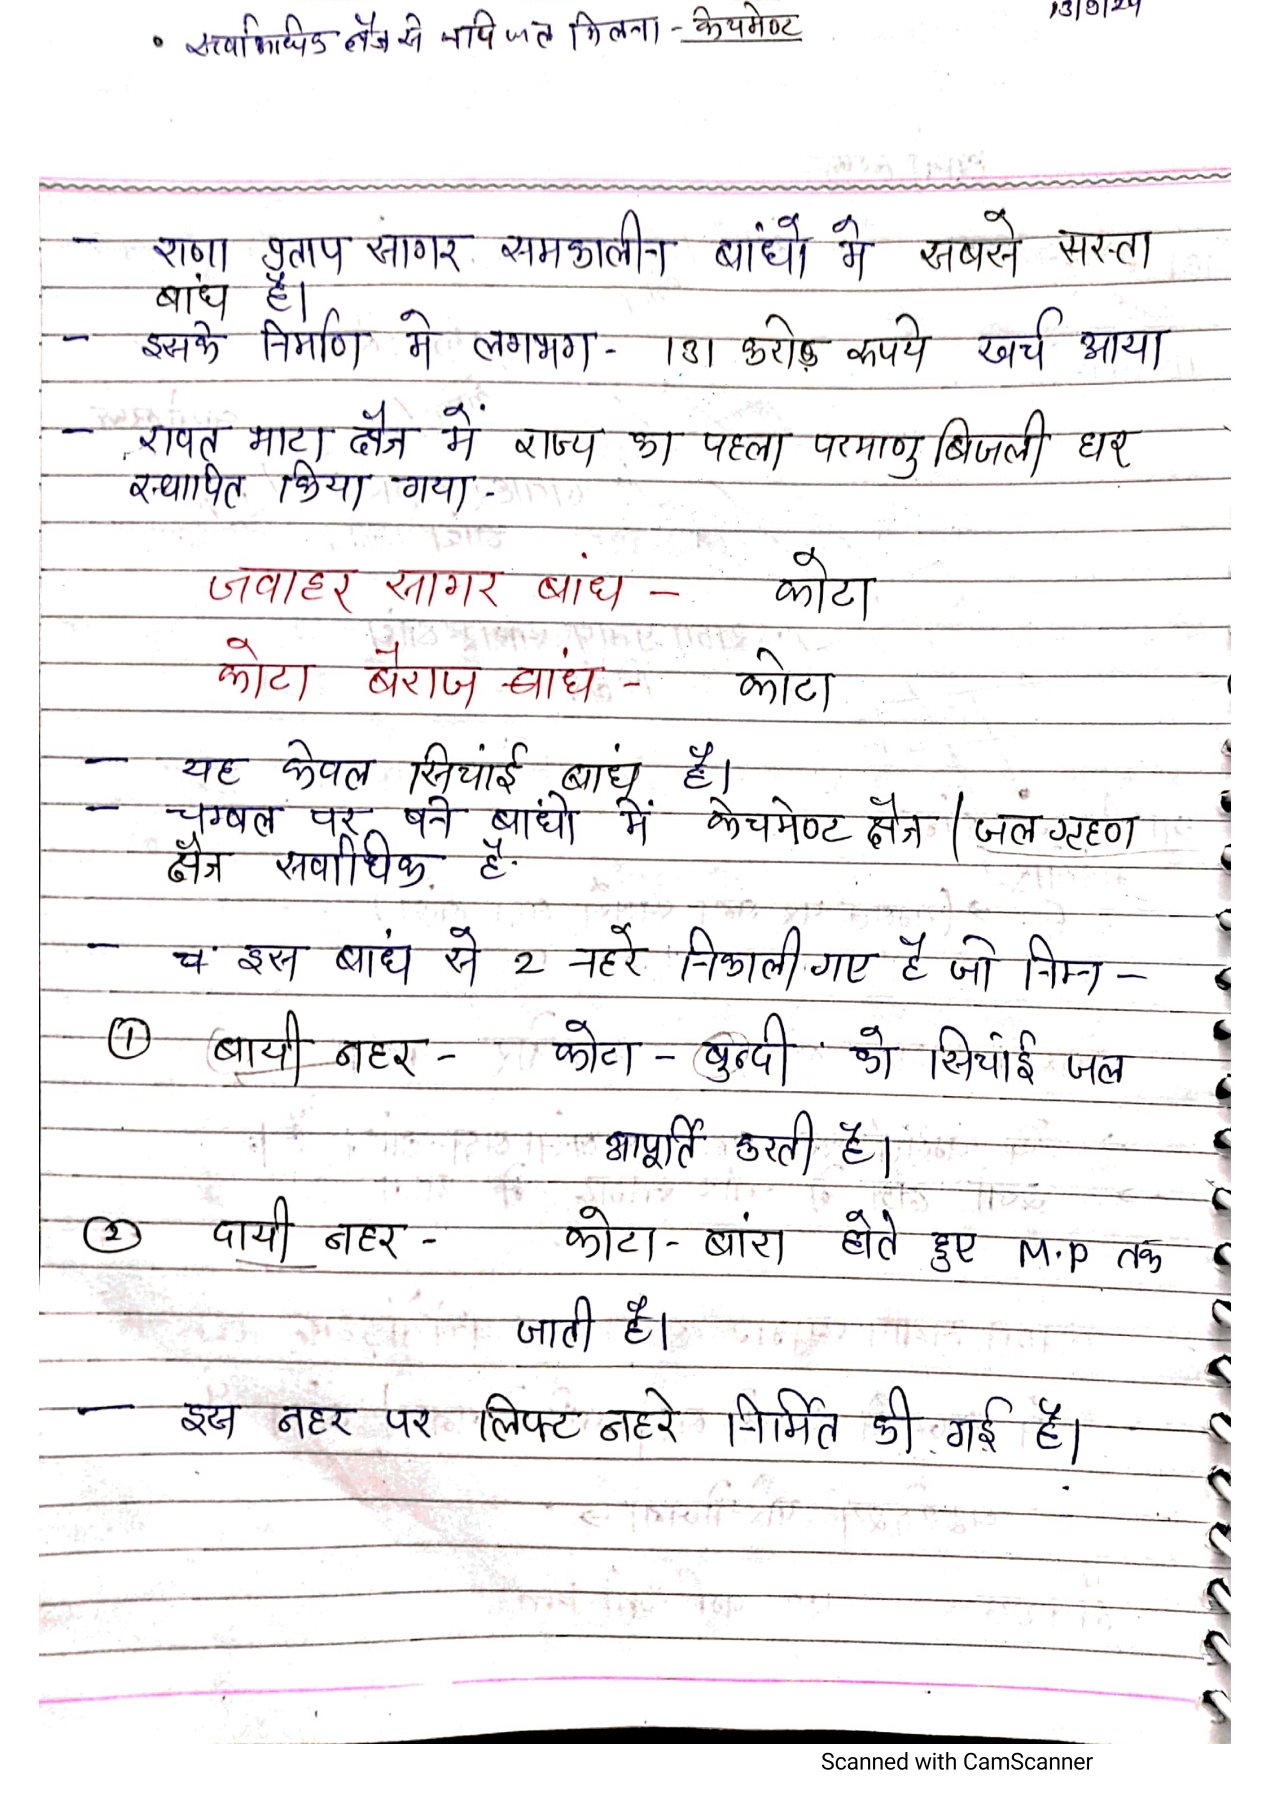 13/9/24
• सर्वाधिक क्षेत्र से जल मिलना - केचमेण्ट
- राणा प्रताप सागर समकालीन बांधो मे सबसे सस्ता
बांध है।
- इसके निर्माण मे लगभग - 131 करोड़ रूपये खर्च आया
- रावत भाटा क्षेत्र में राज्य का पहला परमाणु बिजली घर
स्थापित किया गया -
जवाहर सागर बांध - कोटा
कोटा बैराज बांध - कोटा
- यह केवल सिचांई बांध है।
- चम्बल पर बने बांधो में केचमेण्ट क्षेत्र / जल ग्रहण
क्षेत्र सर्वाधिक है
- च इस बांध से 2 नहरे निकाली गए है जो निम्न -
① बायी नहर - कोटा - बुन्दी को सिचांई जल
आपूर्ति करती है।
② दायी नहर - कोटा - बांरा होते हुए M.P तक
जाती है।
- इस नहर पर लिफ्ट नहरे निर्मित की गई है।
Scanned with CamScanner